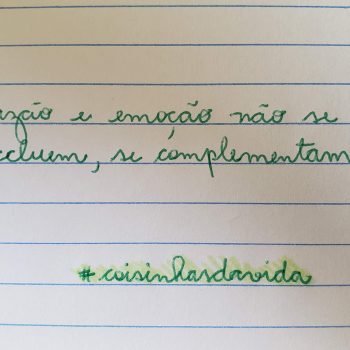 azão e emoção não se
xcluem, se complementam
#coisinhasdavida